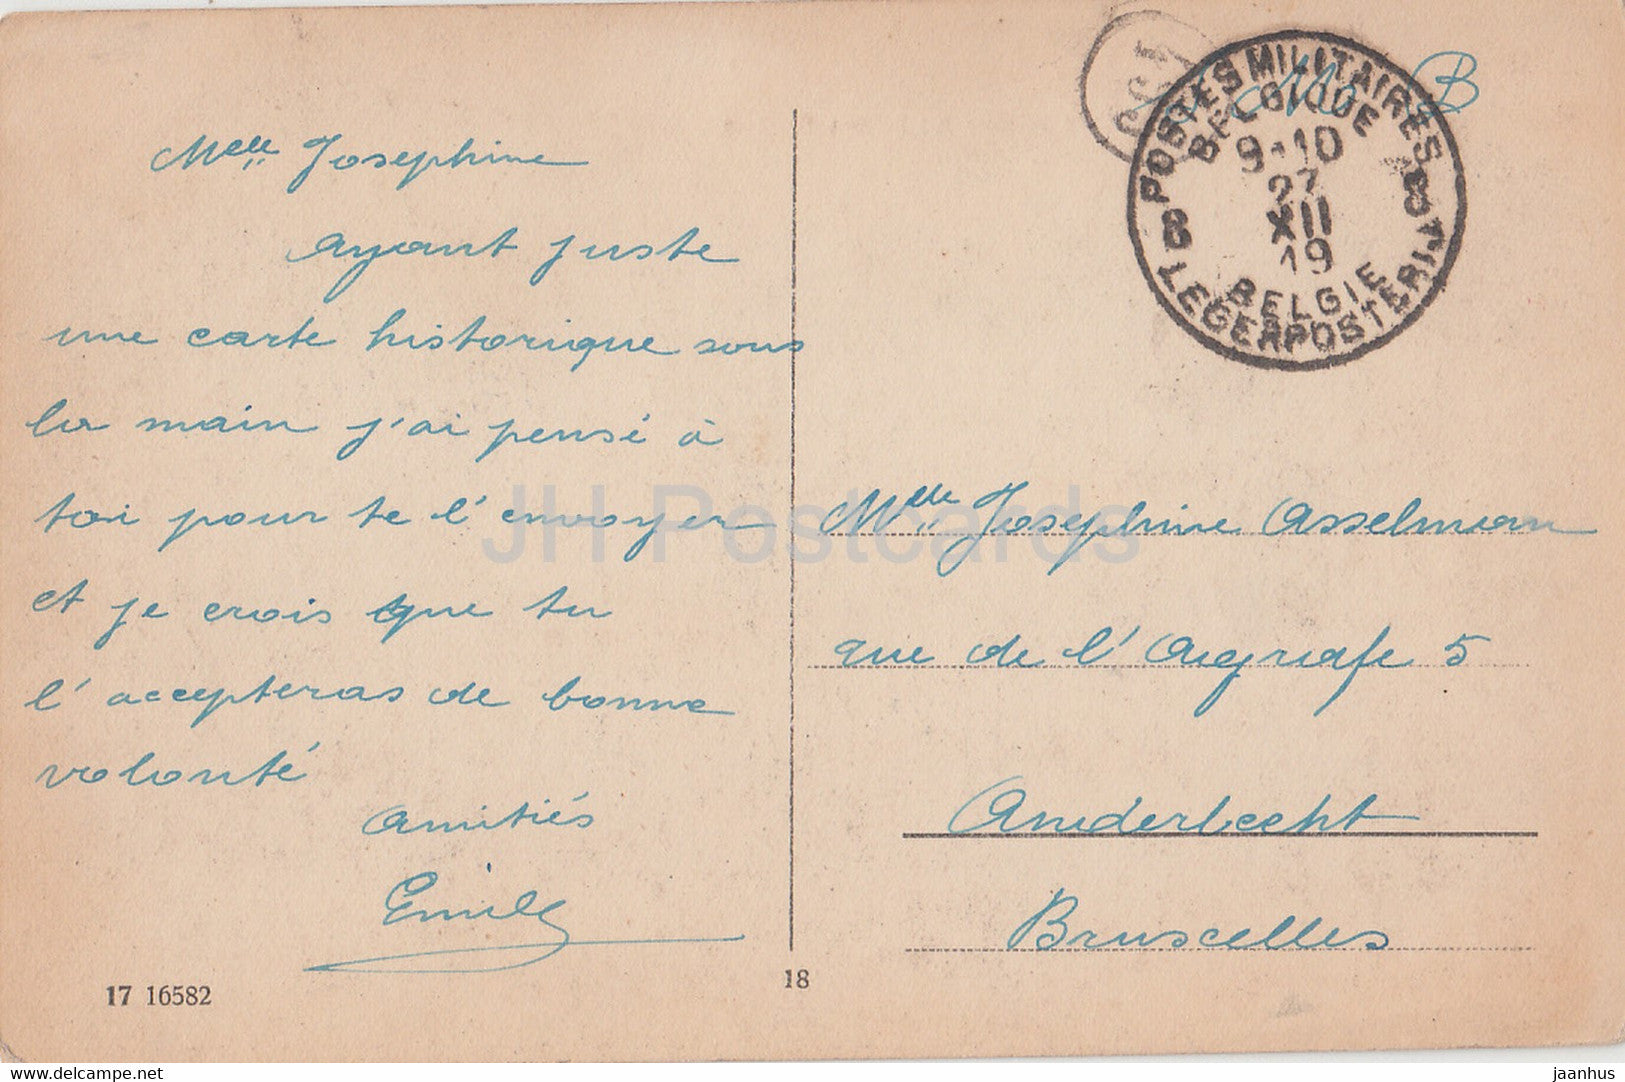 Melle Josephine
Ayant juste
une carte historique sous
la main j'ai pensé à
toi pour te l'envoyer
et je crois que tu
l'accepteras de bonne
volonté
Amitiés
Emile
17 16582
18
POSTES MILITAIRES
BELGIQUE
9-10
27
XII
19
BELGIE
LEGERPOSTERIJ
8
B
Melle Josephine Asselman
rue de l'Agrafe 5
Anderlecht
Bruxcelles
JH Postcards
delcampe.net
jaanhus